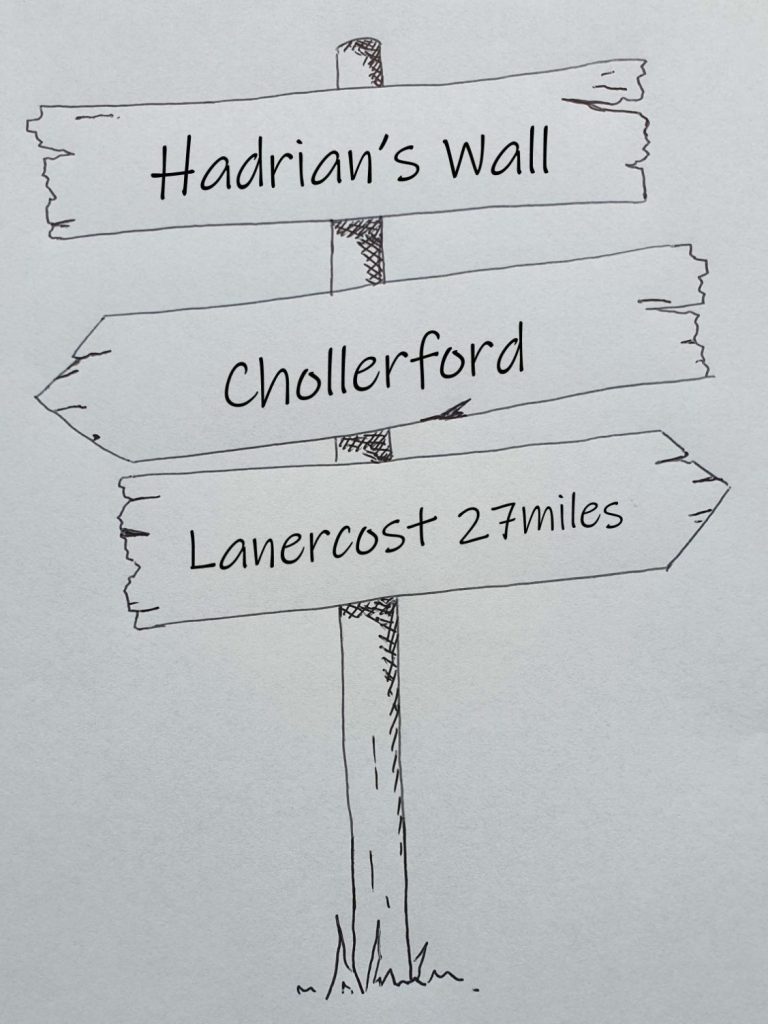 Hadrian's Wall
Chollerford
Lanercost 27miles